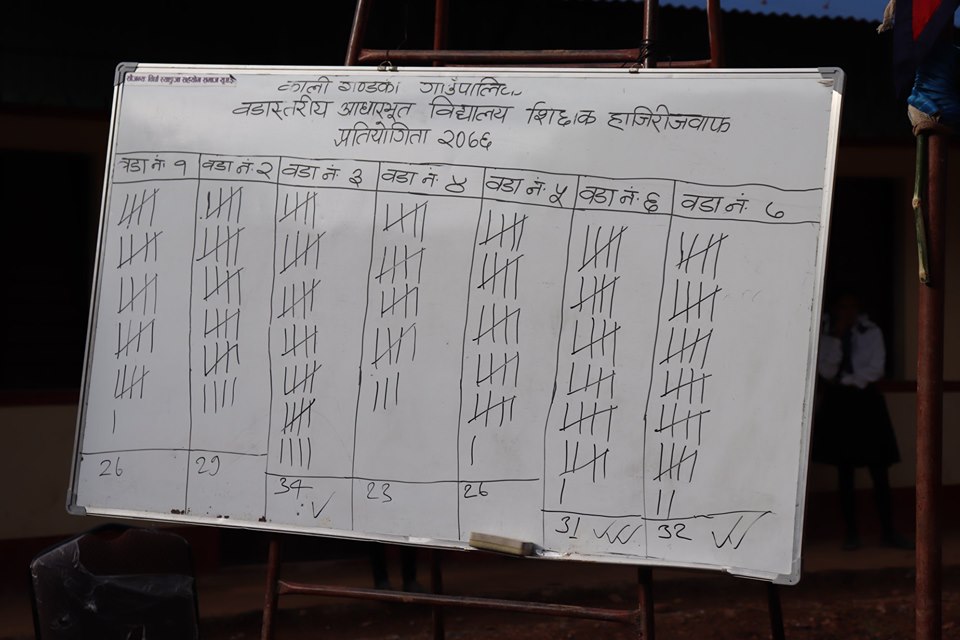 काली गण्डकी गाउँपालिका
वडास्तरीय आधारभूत विद्यालय शिक्षक हाजिरीजवाफ
प्रतियोगिता २०७६
वडा नं. १ वडा नं. २ वडा नं. ३ वडा नं. ४ वडा नं. ५ वडा नं. ६ वडा नं. ७
26 29 34 23 26 31 32